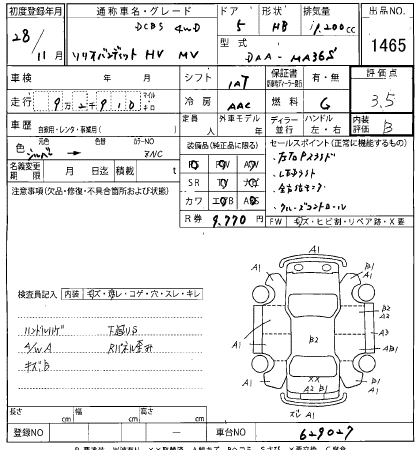 初度登録年月 通称車名・グレード ドア 形状 排気量 出品NO
28 DCBS 4WD 5 HB 1,200cc
11月 ソリオバンディット HV MV 型式 DAA-MA36S 1465
車検 年 月 シフト IAT 保証書 有・無 評価点
走行 9万2千910 マイル キロ 冷房 AAC 燃料 G 3.5
車歴 自家用・レンタ・事業用( ) 定員 人 外車モデル 年 ディーラー 並行 ハンドル 左・右 内装評価 B
元色 シルバー → 色替 カラーNO ZNC
装備品(純正品に限る) セールスポイント(正常に機能するもの)
PS PW AW
名義変更期限 月 日迄 積載 t
SR TV ナビ ・LEDライト
注意事項(欠品・修復・不具合箇所および状態)
カワ エアB AB ・クルーズコントロール
R券 9,770円 FW キズ・ヒビ割・リペア跡・X要
A1
A1 A1 B1
検査員記入 内装 キズ・汚レ・コゲ・穴・スレ・キレ
A1 B2 B2 A2
ハンドルハゲ 下廻りS A3
A/W A Rパネル歪み A1 AB1
キズB XX
A2 B1
A1 A1 B1
A1
長さ cm 幅 cm 高さ cm
登録NO — 車台NO 629027